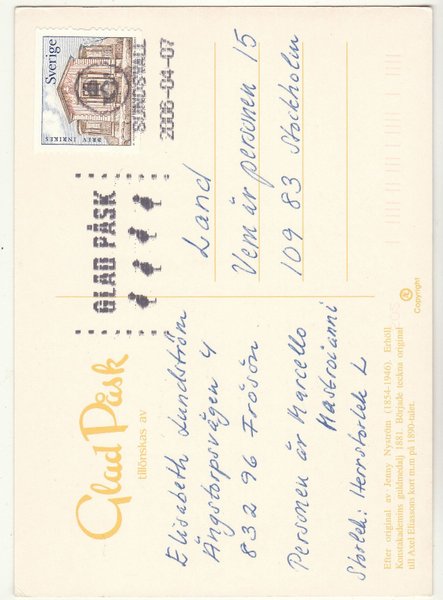 Glad Påsk
tillönskas av
Elisabeth Lundström
Ängstorpsvägen 4
832 96 Frösön.
Personen är Marcello
Mastroianni
Storlek: Herrstorlek L
Efter original av Jenny Nyström (1854-1946). Erhöll
Konstakademins guldmedalj 1881. Började teckna original
till Axel Eliassons kort m.m på 1890-talet.
Copyright
GLAD PÅSK
SUNDSVALL
2006-04-07
Sverige
BREV INRIKES
Land
Vem är personen 15
109 83 Stockholm